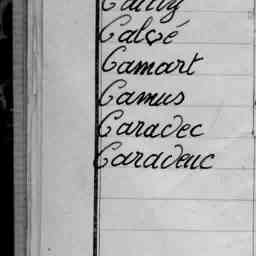 Calvé
Camart
Camus
Caradec
Caradeuc